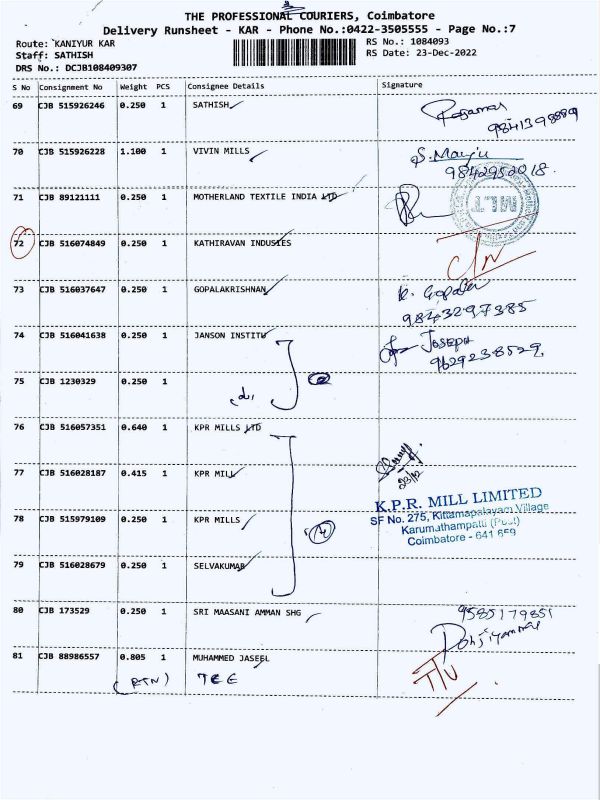 THE PROFESSIONAL COURIERS, Coimbatore
Delivery Runsheet - KAR - Phone No.:0422-3505555 - Page No.:7
Route: KANIYUR KAR
RS No.: 1084093
Staff: SATHISH
RS Date: 23-Dec-2022
DRS No.: DCJB108409307
S No Consignment No Weight PCS Consignee Details Signature
69 CJB 515926246 0.250 1 SATHISH
9841398889
70 CJB 515926228 1.100 1 VIVIN MILLS S. Manju
9842952018.
71 CJB 89121111 0.250 1 MOTHERLAND TEXTILE INDIA LTD
72 CJB 516074849 0.250 1 KATHIRAVAN INDUSIES
73 CJB 516037647 0.250 1 GOPALAKRISHNAN
9843297385
74 CJB 516041638 0.250 1 JANSON INSTITU Joseph
9629238529
75 CJB 1230329 0.250 1
76 CJB 516057351 0.640 1 KPR MILLS LTD
23/12
77 CJB 516028187 0.415 1 KPR MILL
K.P.R. MILL LIMITED
78 CJB 515979109 0.250 1 KPR MILLS
SF No. 275, Kittampalayam Village
Karumathampatti (Post)
Coimbatore - 641 659
79 CJB 516028679 0.250 1 SELVAKUMAR
80 CJB 173529 0.250 1 SRI MAASANI AMMAN SHG 9585179851
81 CJB 88986557 0.805 1 MUHAMMED JASEEL
(RTN)